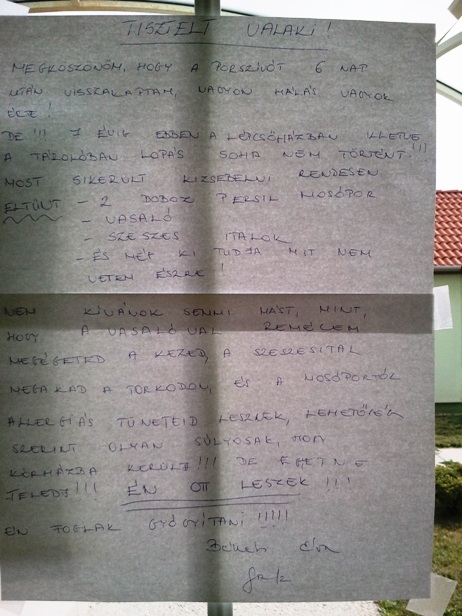 TISZTELT VALAKI!
MEGKÖSZÖNÖM, HOGY A PORSZÍVÓT 6 NAP
UTÁN VISSZAKAPTAM, NAGYON HÁLÁS VAGYOK
ÉRTE!
DE!!! 7 ÉVIG EBBEN A LÉPCSŐHÁZBAN ILLETVE
A TÁROLÓBAN LOPÁS SOHA NEM TÖRTÉNT!!!
MOST SIKERÜLT KIZSEBELNI RENDESEN
ELTŰNT - 2 DOBOZ PERSIL MOSÓPOR
- VASALÓ
- SZESZES ITALOK
- ÉS MÉG KI TUDJA MIT NEM
VETEM ÉSZRE!
NEM KÍVÁNOK SEMMI MÁST, MINT,
HOGY A VASALÓVAL REMÉLEM
MEGÉGETED A KEZED, A SZESZESITAL
MEGAKAD A TORKODON, ÉS A MOSÓPORTÓL
ALLERGIÁS TÜNETEID LESZNEK, LEHETŐLEG
SZERINT OLYAN SÚLYOSAK, HOGY
KÓRHÁZBA KERÜLJ!!! DE ÉGETNE
TELEDJ!!! ÉN OTT LESZEK!!!
ÉN FOGLAK GYÓGYÍTANI!!!!!